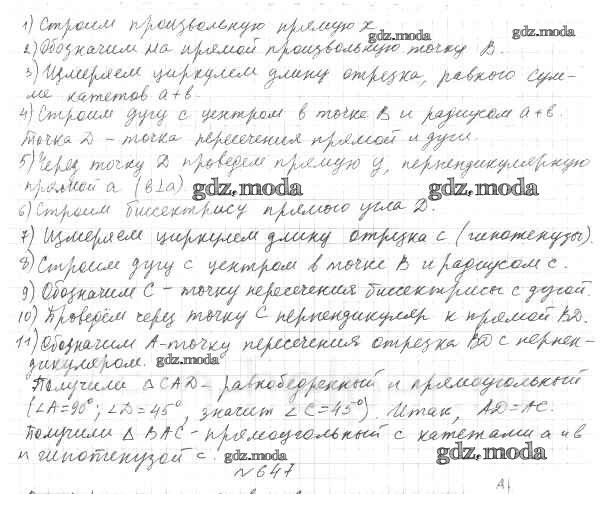 1) Строим произвольную прямую x.
gdz.moda
gdz.moda
2) Обозначим на прямой произвольную точку B.
3) Измеряем циркулем длину отрезка, равного сум-
ме катетов a+b.
4) Строим дугу с центром в точке B и радиусом a+b.
Точка D – точка пересечения прямой и дуги.
5) Через точку D проведем прямую y, перпендикулярную
прямой a (b⊥a)
gdz.moda
gdz.moda
6) Строим биссектрису прямого угла D.
7) Измеряем циркулем длину отрезка c (гипотенузы).
8) Строим дугу с центром в точке B и радиусом c.
9) Обозначим C – точку пересечения биссектрисы с дугой.
10) Проведём через точку C перпендикуляр к прямой BD.
11) Обозначим A – точку пересечения отрезка BD с перпен-
дикуляром.
gdz.moda
Получили △CAD – равнобедренный и прямоугольный
(∠A=90°; ∠D=45°, значит ∠C=45°). Итак, AD=AC.
Получили △BAC – прямоугольный с катетами a и b
и гипотенузой c.
gdz.moda
gdz.moda
№647